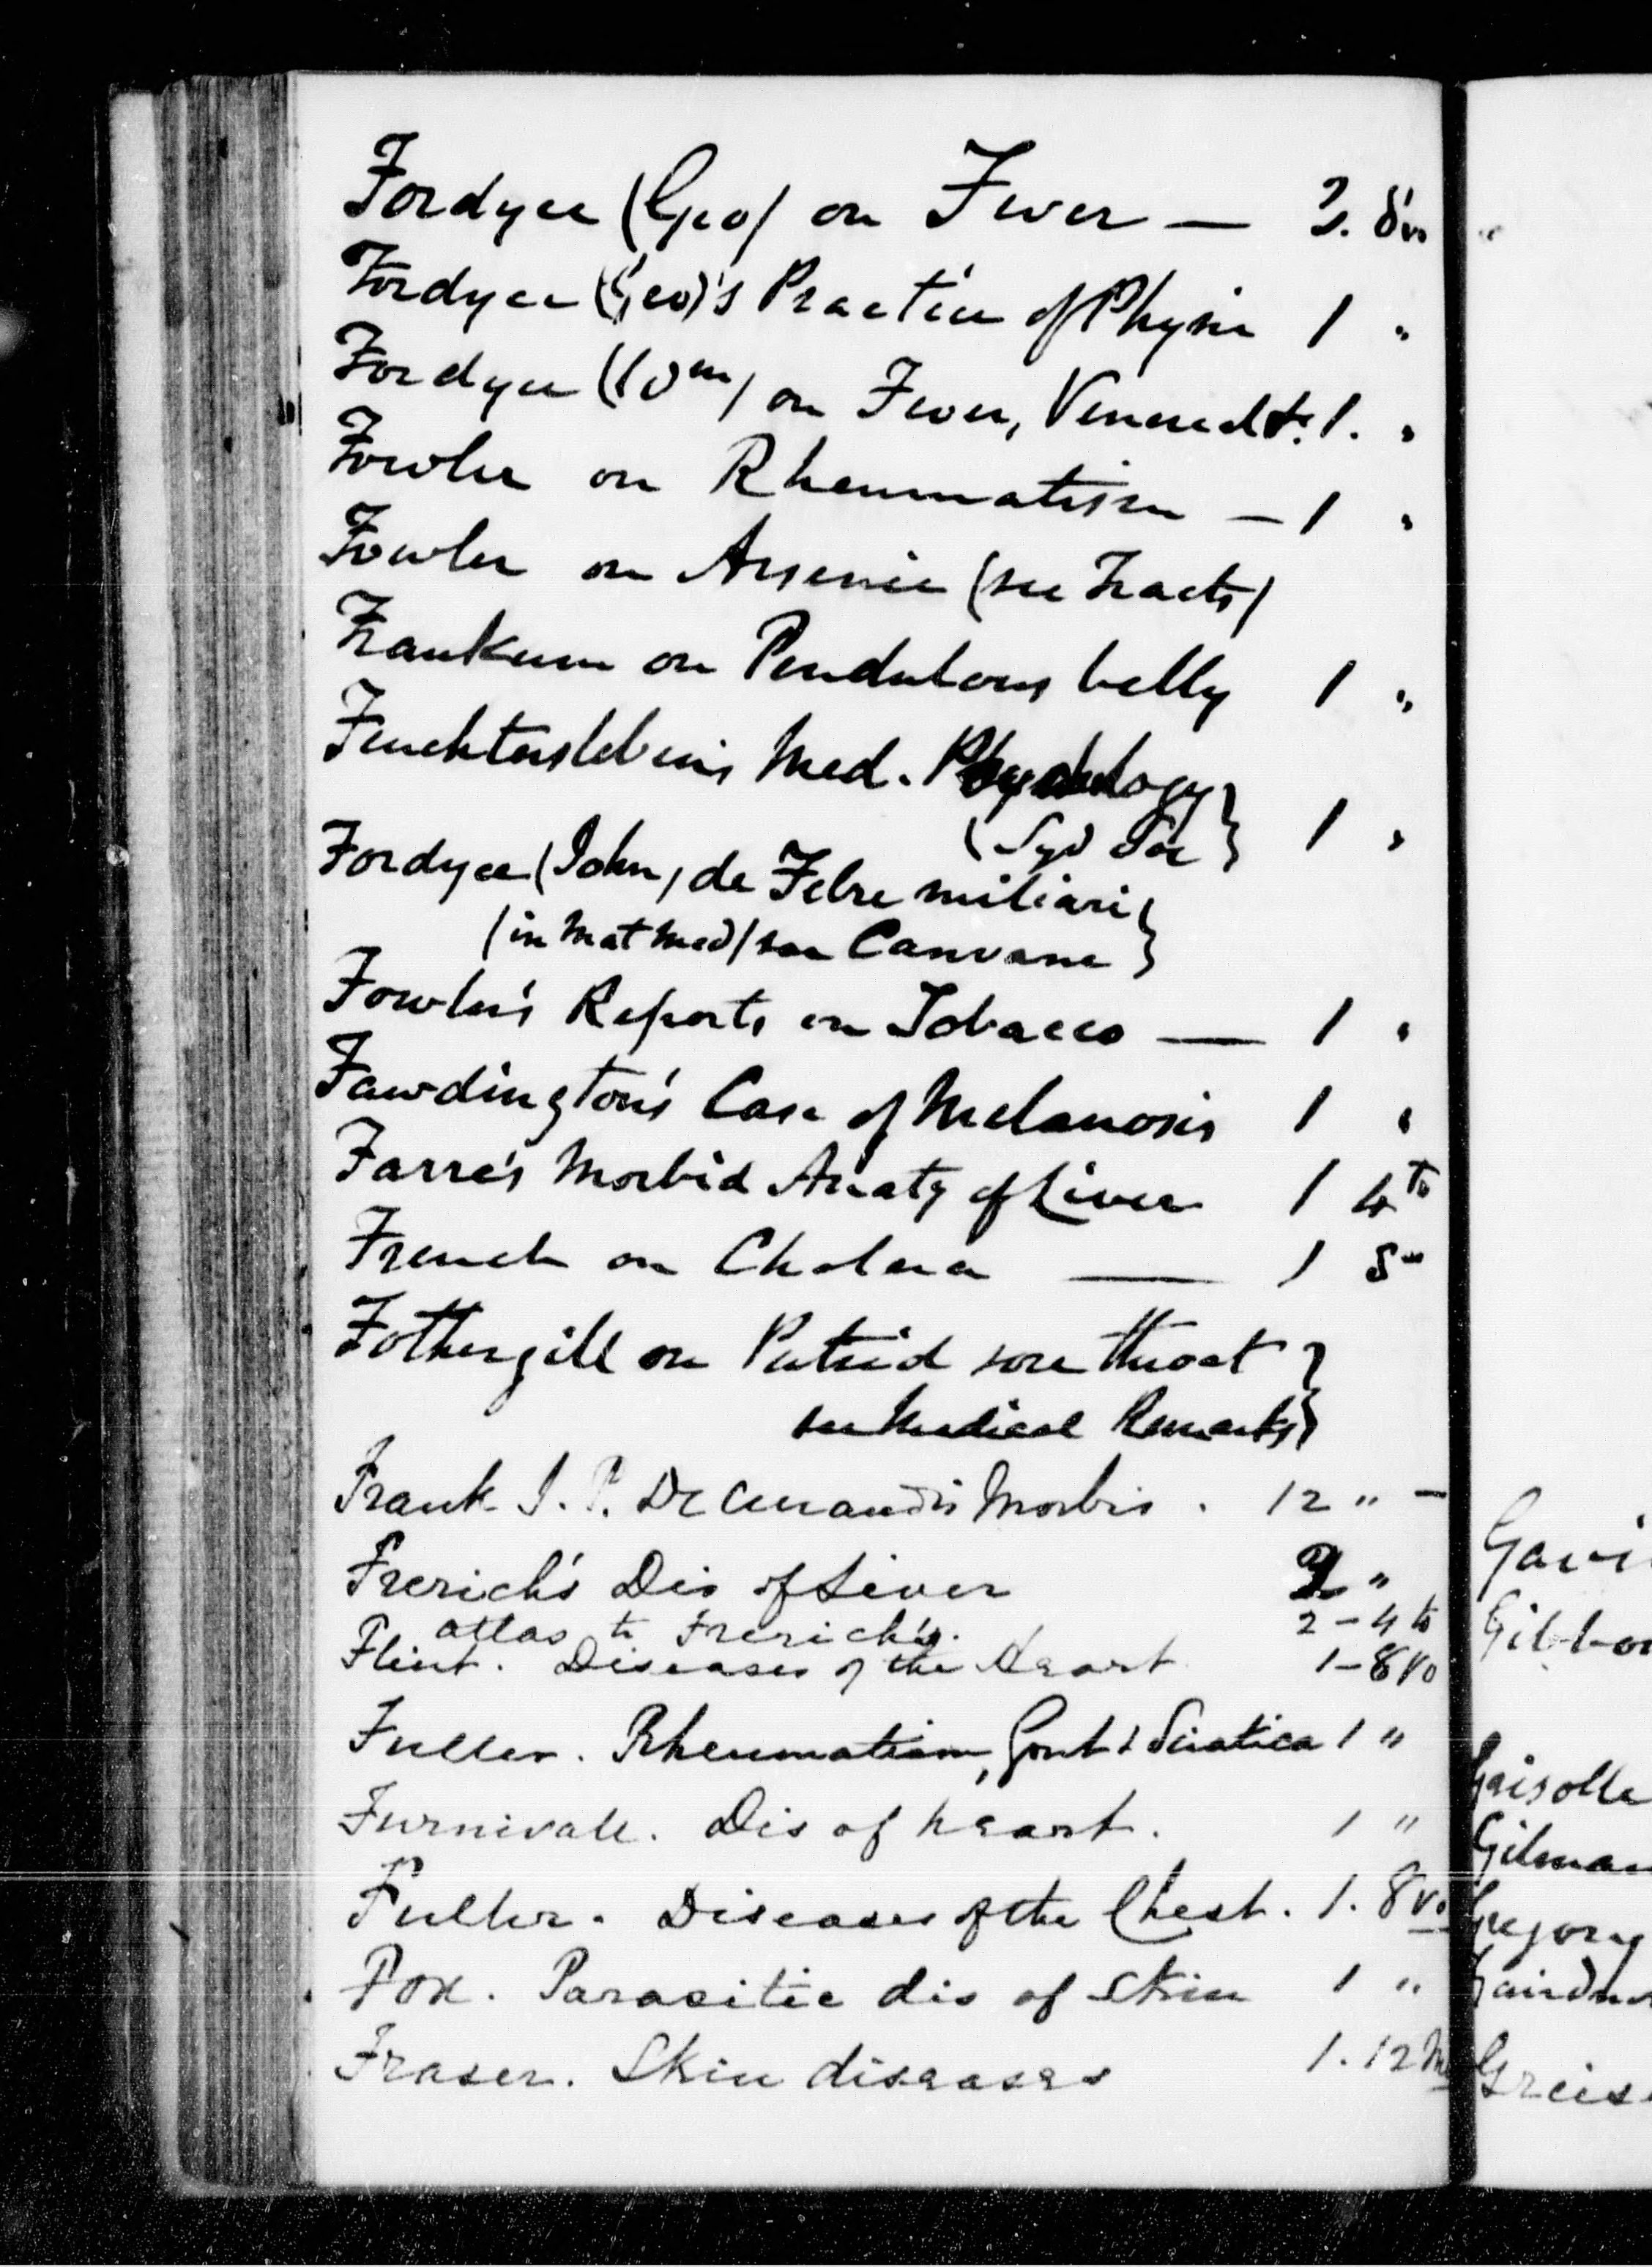 Fordyce (Geo) on Fever — 2. 8vo
Fordyce (Geo)'s Practice of Physic 1 "
Fordyce (Wm) on Fever, Venereal &c. 1. "
Fowler on Rheumatism — 1 "
Fowler on Arsenic (see Tracts)
Frankum on Pendulous belly 1 "
Feuchtersleben's Med. Psychology }
(Syd Soc } 1 "
Fordyce (John) de Febre miliari }
(in Mat Med) see Canvane }
Fowler's Reports on Tobacco — 1 "
Fawdington's Case of Melanosis 1 "
Farre's Morbid Anaty of Liver 1 4to
French on Cholera — 1 8vo
Fothergill on Putrid sore throat }
see Medical Remarks }
Frank J. P. De Curandis Morbis . 12 " –
Frerich's Dis of Liver 2 "
atlas to Frerich's. 2 – 4to
Flint. Diseases of the Heart 1 – 8vo
Fuller. Rheumatism, Gout & Sciatica 1 "
Furnivall. Dis of heart. 1 "
Fuller. Diseases of the Chest. 1. 8vo
Fox. Parasitic dis of Skin 1 "
Fraser. Skin diseases 1. 12mo
Gavi
Gibbo
Grisolle
Gilman
Gregory
Gairdn
Gries